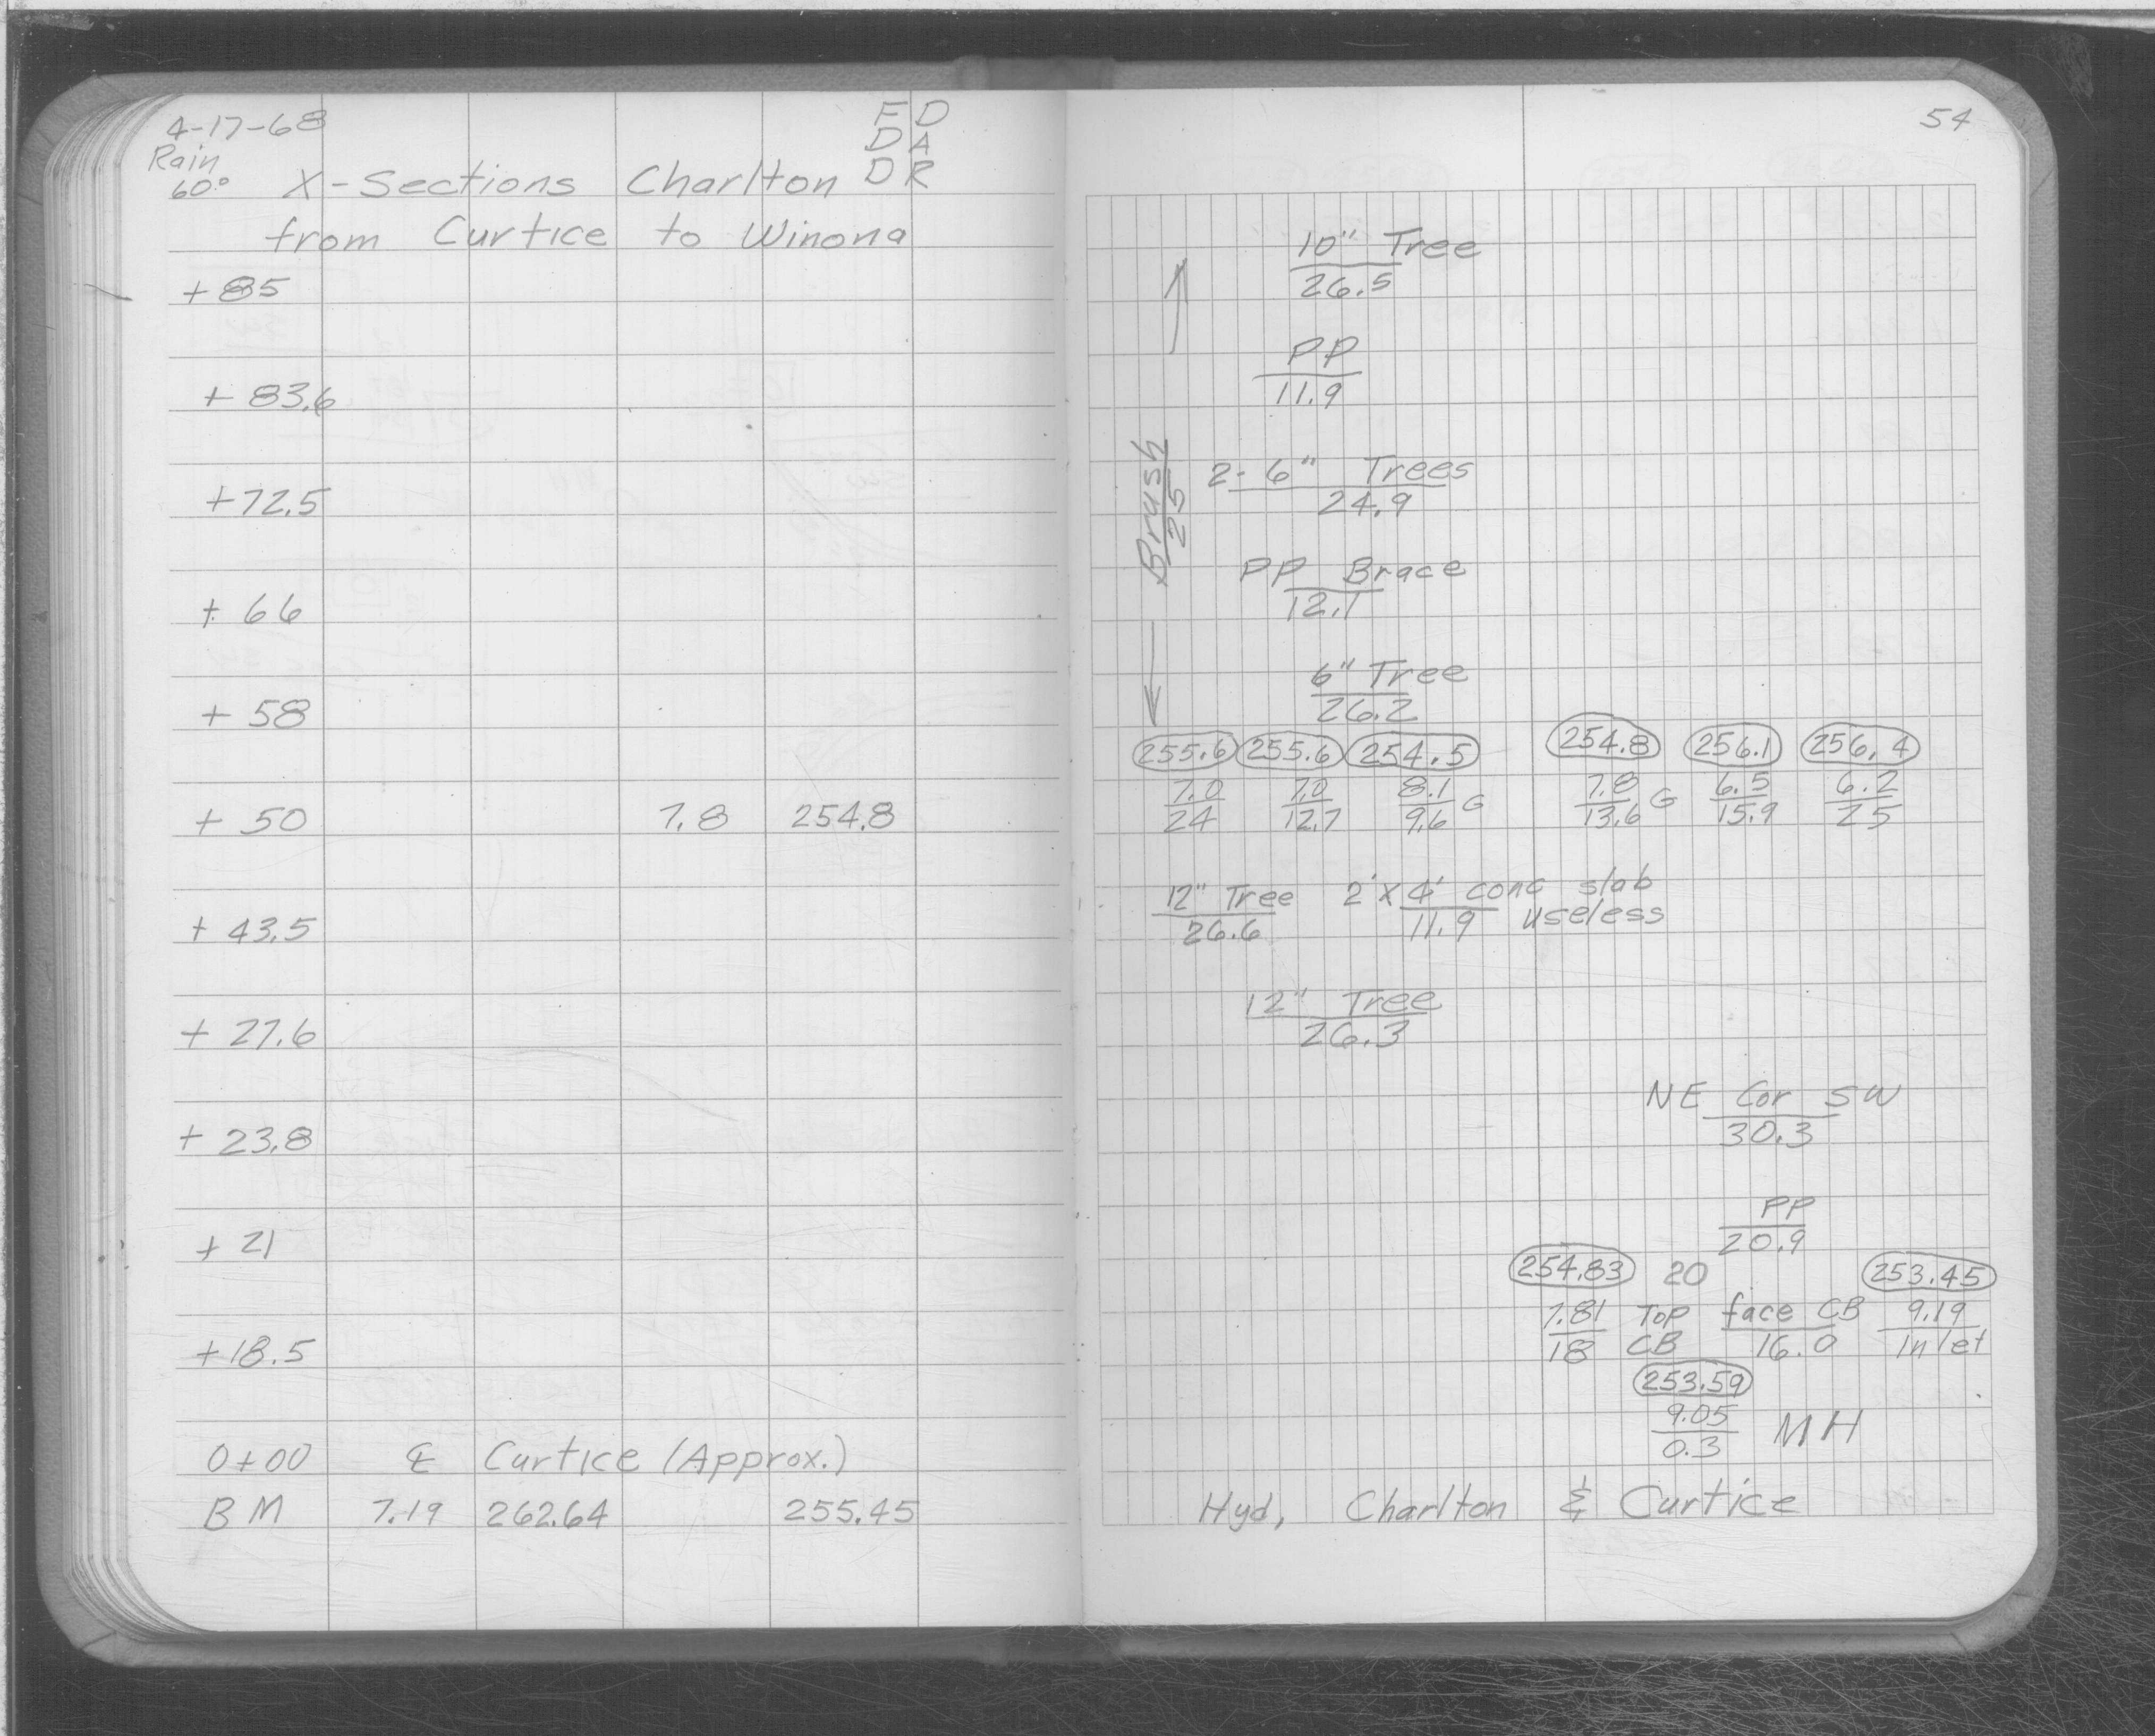 4-17-68
Rain
60°
F D
D A
D R
X-Sections Charlton
from Curtice to Winona
+85
+ 83.6
+72.5
+ 66
+ 58
+ 50 7.8 254.8
+ 43.5
+ 27.6
+ 23.8
+ 21
+18.5
0+00 ℄ Curtice (Approx.)
BM 7.19 262.64 255.45
54
10" Tree
26.5
PP
11.9
Brush
25
2- 6" Trees
24.9
PP Brace
12.1
6" Tree
26.2
255.6 255.6 254.5 254.8 256.1 256.4
7.0 7.0 8.1 G 7.8 G 6.5 6.2
24 12.7 9.6 13.6 15.9 25
12" Tree 2' X 4' conc slab
26.6 11.9 useless
12" Tree
26.3
NE Cor SW
30.3
PP
20.9
254.83 20 253.45
7.81 Top face CB 9.19
18 CB 16.0 Inlet
253.59
9.05 MH
0.3
Hyd, Charlton & Curtice